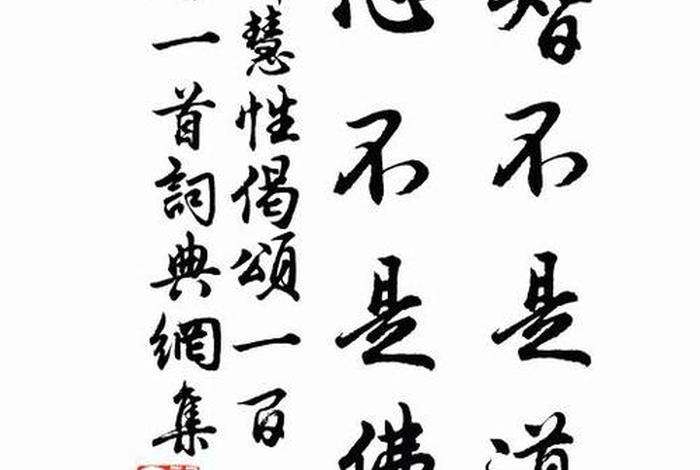 智不是道
心不是佛
慧性偈頌一百
一首詞典網集